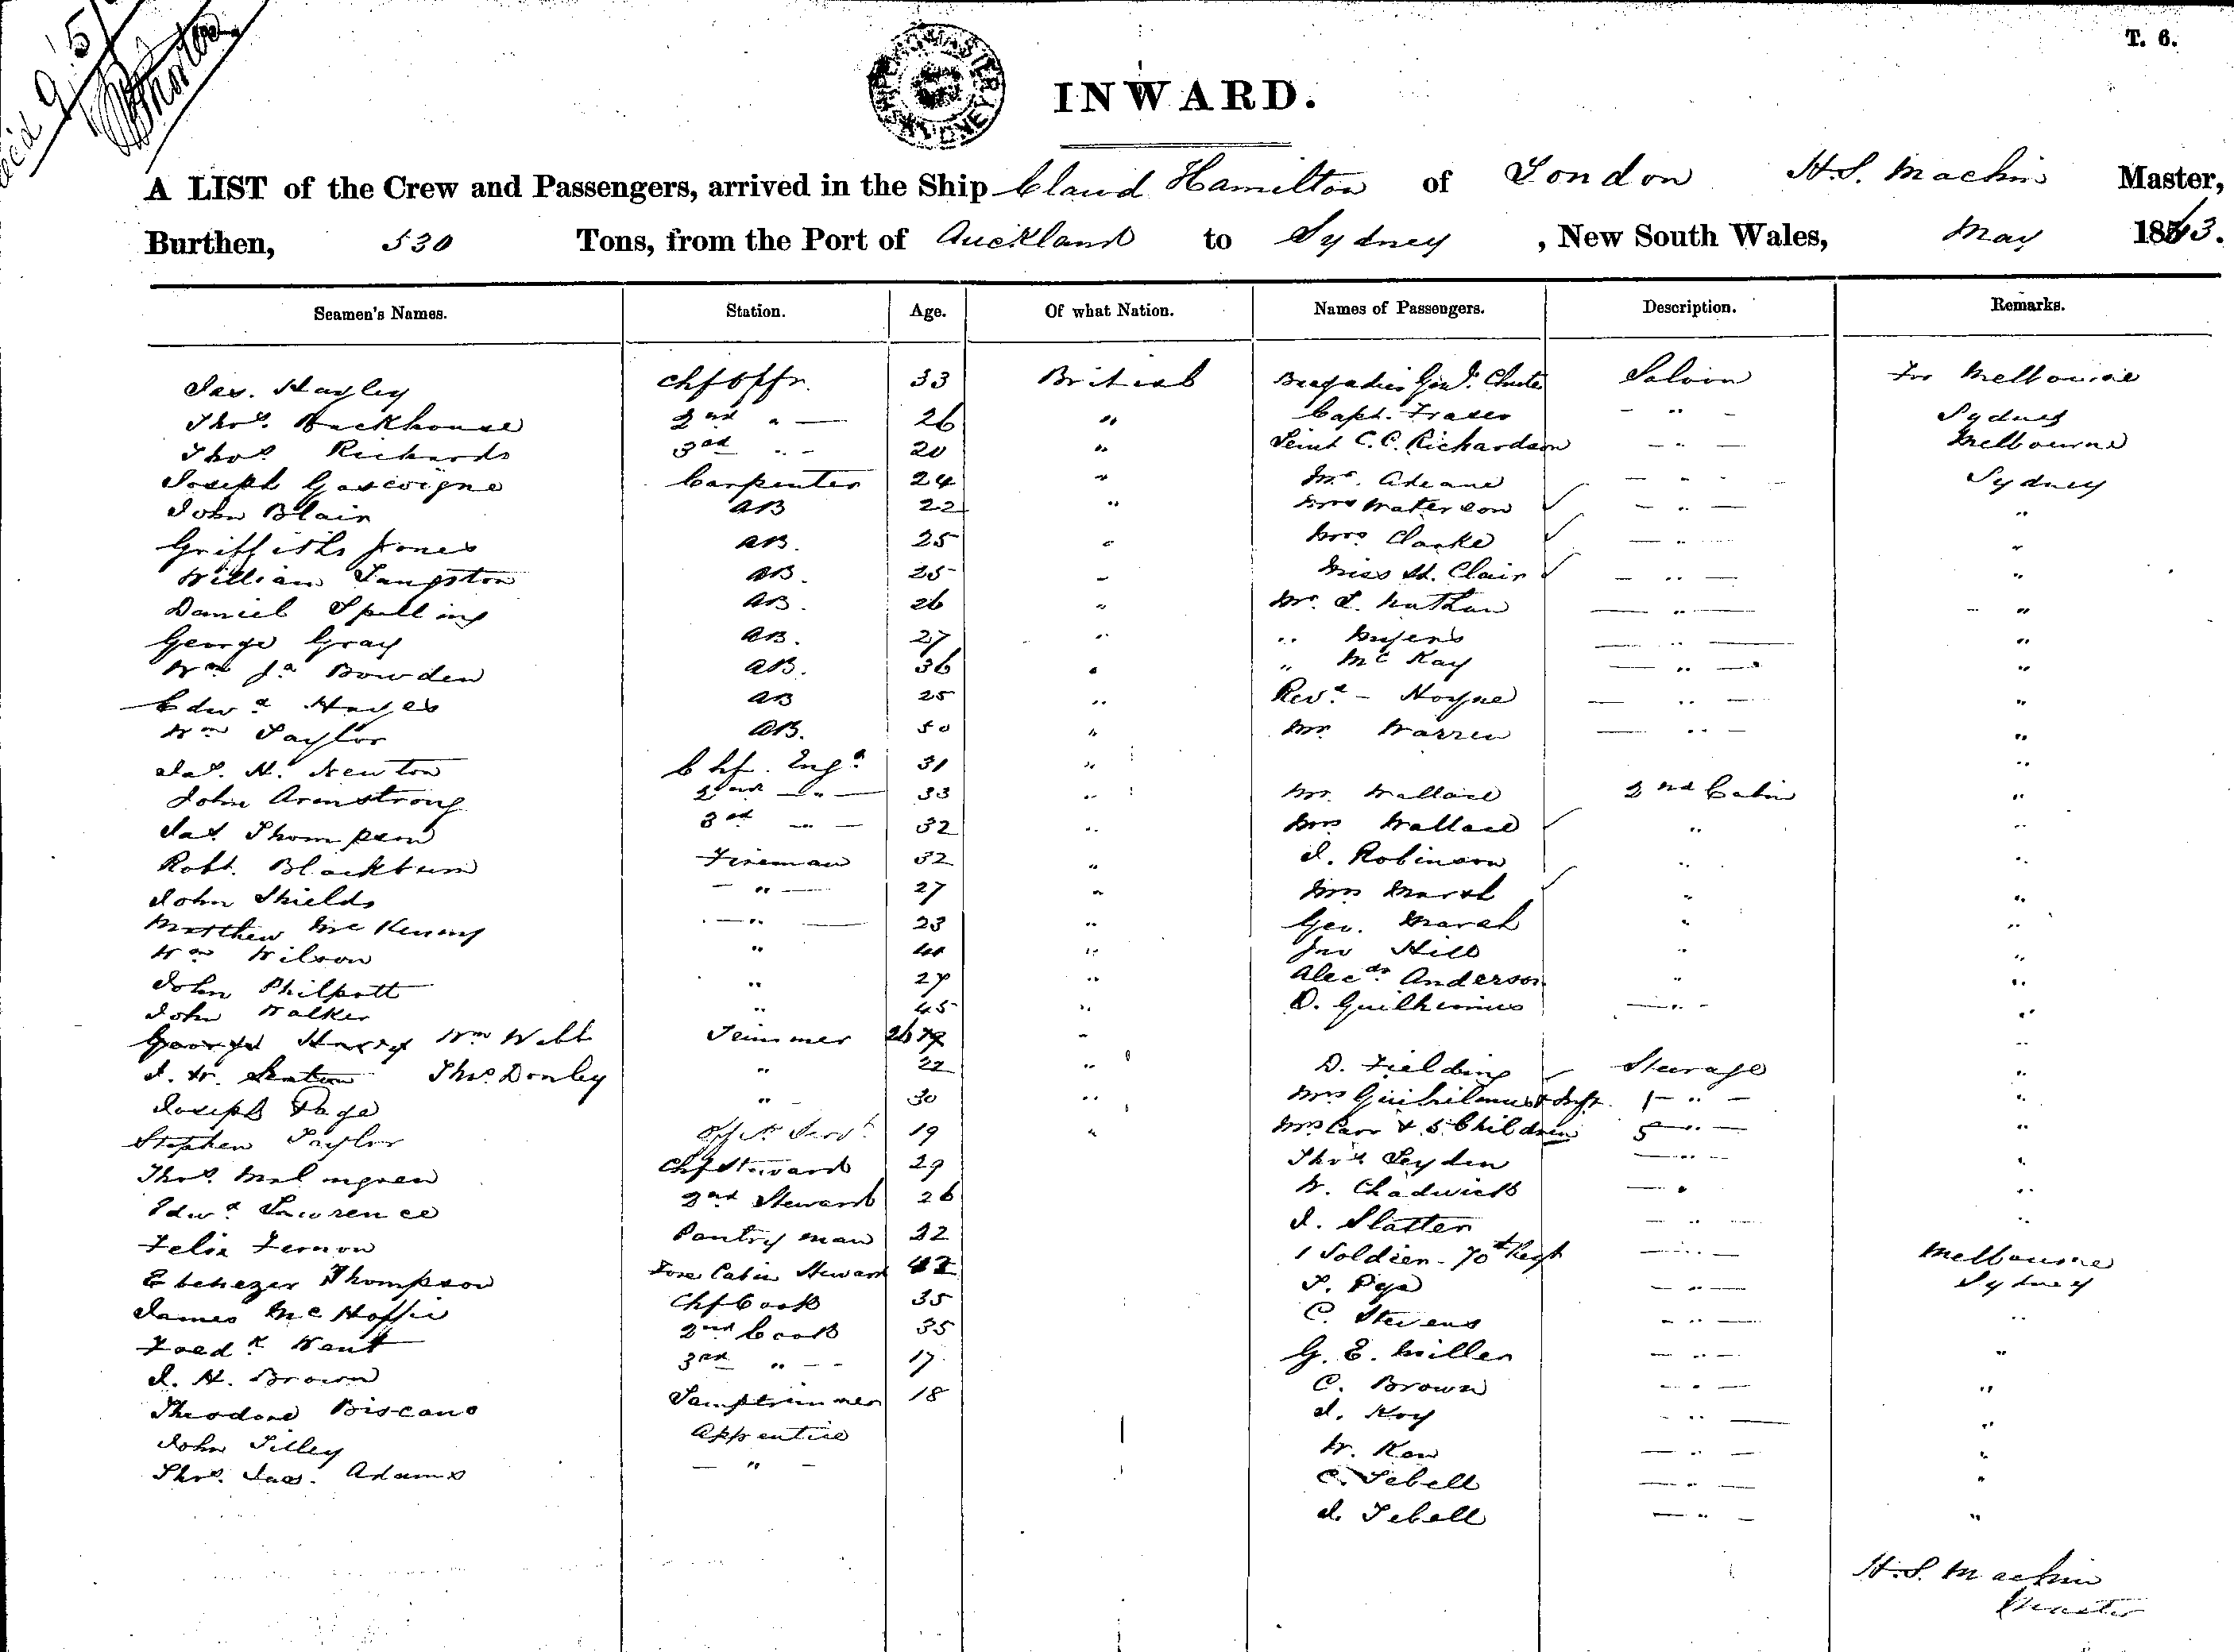 T. 6.
INWARD.
A LIST of the Crew and Passengers, arrived in the Ship Claud Hamilton of London H.S. Machin Master,
Burthen, 530 Tons, from the Port of Auckland to Sydney, New South Wales, May 1863.
Seamen's Names. Station. Age. Of what Nation. Names of Passengers. Description. Remarks.
Jas. Hayley Chf Offr. 33 British Brigadier Genl. Chute Saloon For Melbourne
Thos. Backhouse 2nd " — 26 " Capt. Fraser - " - Sydney
Thos Richards 3rd " - 20 " Leiut C.C. Richardson — " — Melbourne
Joseph Gascoigne Carpenter 24 " Mr. Adeane — " - Sydney
John Blair AB 22 " Mrs Waterson — " — "
Griffiths Jones AB. 25 " Mrs Clarke — " — "
William Langston AB. 25 " Miss St. Clair — " — "
Daniel Spelling AB. 26 " Mr. L. Nathan — " — "
George Gray AB. 27 " " Myers — " — "
Wm Ja Bowden AB. 36 " " McKay — " — "
Edwd Hayes AB 25 " Revd - Hoyne — " — "
Wm Taylor AB. 50 " Mr. Warren — " — "
Jas. H. Newton Chf. Engr 31 " "
John Armstrong 2nd — " — 33 " Mr. Wallace 2nd Cabin "
Jas. Thompson 3rd " — 32 " Mrs Wallace " "
Robt. Blackburn Fireman 32 " J. Robinson " "
John Shields — " — 27 " Mrs Marsh " "
Matthew McKenny — " — 23 " Geo. Marsh " "
Wm Wilson " " Jno Hill " "
John Philpott " 27 " Alecdr Anderson " "
John Walker " 45 " D. Guilhemus — " - "
George Harry Wm Webb Trimmer 26 " "
J. W. Thos. Donley " 22 " D. Fielding Steerage "
Joseph Page " - 30 " Mrs Guihelmus & Inft. 1 — " — "
Stephen Taylor Offrs Servt. 19 " Mrs Carr & 5 Children 5 — " — "
Thos. Malmgren Chf Steward 29 Thos Leyden — " — "
Edwd Lawrence 2nd Steward 26 W. Chadwick — " "
Felix Fernon Pantry man 22 J. Slatter — " — "
Ebenezer Thompson Fore Cabin Steward 1 Soldier - 70th Regt — " — Melbourne
James McHaffie Chf Cook 35 — " — Sydney
Fredk Went 2nd Cook 35 C. Stevens — " — "
J. H. Brown 3rd " - - 17 G. E. Miller — " — "
Theodore Biscano Lamptrimmer 18 C. Brown — " — "
John Tilley Apprentice J. Roy — " — "
Thos. Jas. Adams — " - W. Kew — " — "
C. Tebell — " — "
J. Tebell — " - "
H.S. Machin
Master